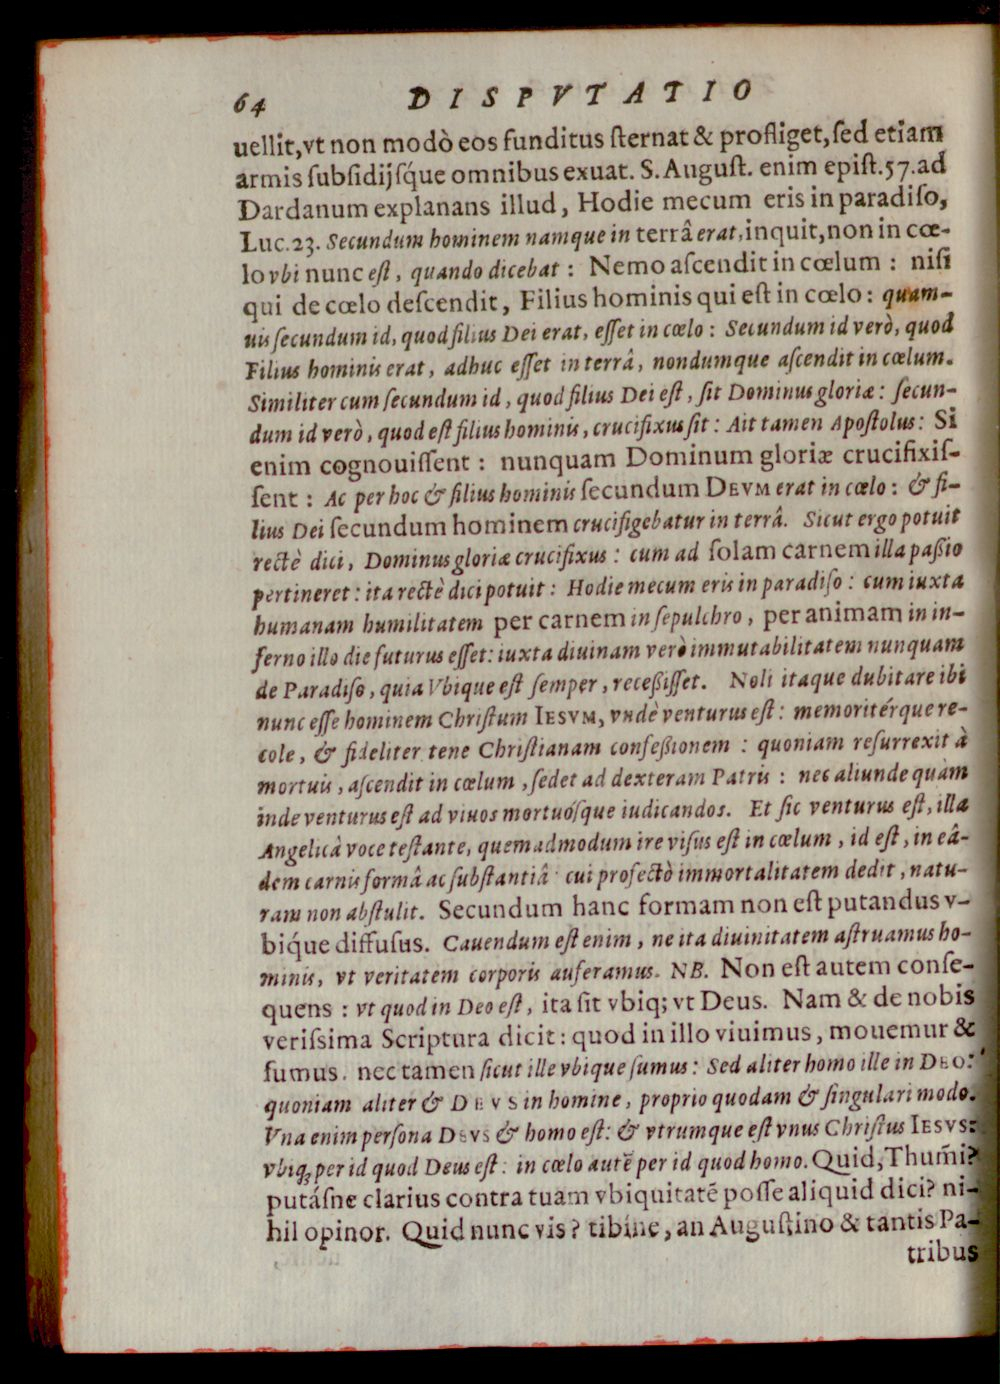 64 DISPVTATIO
uellit, vt non modò eos funditus ſternat & profliget, ſed etiam
armis ſubſidijſq́ue omnibus exuat. S. Auguſt. enim epiſt. 57. ad
Dardanum explanans illud, Hodie mecum eris in paradiſo,
Luc. 23. Secundum hominem namque in terrâ erat, inquit, non in cœ-
lo vbi nunc eſt, quando dicebat: Nemo aſcendit in cœlum: niſi
qui de cœlo deſcendit, Filius hominis qui eſt in cœlo: quam-
uis ſecundum id, quod filius Dei erat, eſſet in cœlo: Secundum id verò, quod
Filius hominis erat, adhuc eſſet in terrâ, nondumque aſcendit in cœlum.
Similiter cum ſecundum id, quod filius Dei eſt, ſit Dominus gloriæ: ſecun-
dum id verò, quod eſt filius hominis, crucifixus ſit: Ait tamen Apoſtolus: Si
enim cognouiſſent: nunquam Dominum gloriæ crucifixiſ-
ſent: Ac per hoc & filius hominis ſecundum DEVM erat in cœlo: & fi-
lius Dei ſecundum hominem crucifigebatur in terrâ. Sicut ergo potuit
rectè dici, Dominus gloriæ crucifixus: cum ad ſolam carnem illa paßio
pertineret: ita rectè dici potuit: Hodie mecum eris in paradiſo: cum iuxta
humanam humilitatem per carnem in ſepulchro, per animam in in-
ferno illo die futurus eſſet: iuxta diuinam verò immutabilitatem nunquam
de Paradiſo, quia Vbique eſt ſemper, receßiſſet. Noli itaque dubitare ibi
nunc eſſe hominem Chriſtum IESVM, vndè venturus eſt: memoritérque re-
cole, & fideliter tene Chriſtianam confeßionem: quoniam reſurrexit à
mortuis, aſcendit in cœlum, ſedet ad dexteram Patris: nec aliunde quàm
inde venturus eſt ad viuos mortuóſque iudicandos. Et ſic venturus eſt, illa
Angelicâ voce teſtante, quemadmodum ire viſus eſt in cœlum, id eſt, in eâ-
dem carnis formâ ac ſubſtantiâ cui profectò immortalitatem dedit, natu-
ram non abſtulit. Secundum hanc formam non eſt putandus v-
biq́ue diffuſus. Cauendum eſt enim, ne ita diuinitatem aſtruamus ho-
minis, vt veritatem corporis auferamus. NB. Non eſt autem conſe-
quens: vt quod in Deo eſt, ita ſit vbiq; vt Deus. Nam & de nobis
veriſsima Scriptura dicit: quod in illo viuimus, mouemur &
ſumus. nec tamen ſicut ille vbique ſumus: Sed aliter homo ille in DEO:
quoniam aliter & DEVS in homine, proprio quodam & ſingulari modo.
Vna enim perſona DEVS & homo eſt: & vtrumque eſt vnus Chriſtus IESVS:
vbiq; per id quod Deus eſt: in cœlo autē per id quod homo. Quid, Thum̃i?
putáſne clarius contra tuam vbiquitatē poſſe aliquid dici? ni-
hil opinor. Quid nunc vis? tibíne, an Auguſtino & tantis Pa-
tribus